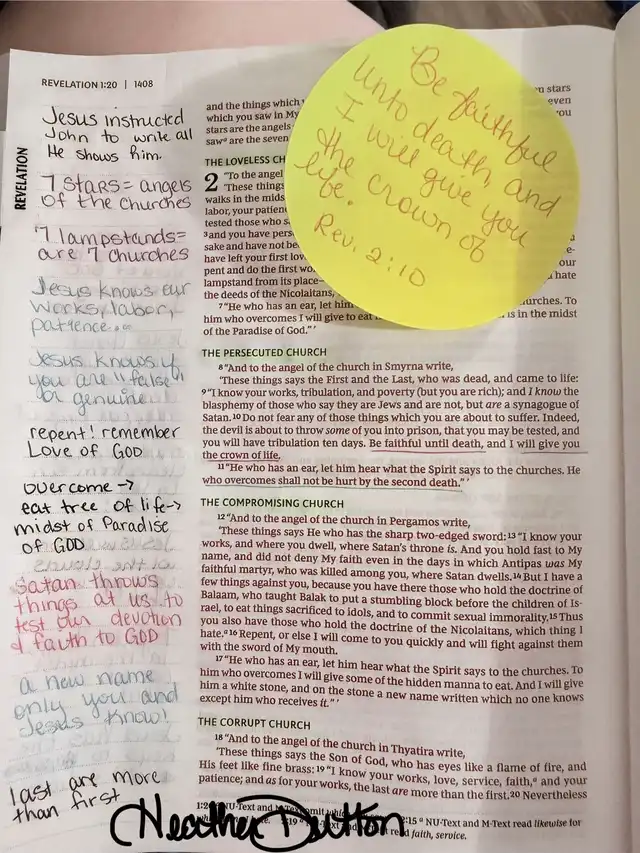 REVELATION 1:20 | 1408
REVELATION
Jesus instructed
John to write all
He shows him.
7 stars = angels
of the churches
7 lampstands =
are 7 churches
Jesus knows our
works, labor,
patience...
Jesus knows if
you are "false"
or genuine
repent! remember
Love of GOD
overcome →
eat tree of life →
midst of Paradise
of GOD
Satan throws
things at us to
test our devotion
& faith to GOD
a new name
only you and
Jesus know!
last are more
than first
Be faithful
unto death, and
I will give you
the crown of
life.
Rev. 2:10
and the things which
which you saw in My
stars are the angels
sawª are the seven
n stars
even
ou
THE LOVELESS CH
2 "To the angel
'These things
walks in the mids
labor, your patienc
tested those who s
3and you have pers
sake and have not be
have left your first lov
pent and do the first wo
lampstand from its place—
the deeds of the Nicolaitans,
e-
our
hate
7"He who has an ear, let him urches. To
him who overcomes I will give to eat is in the midst
of the Paradise of God."'
THE PERSECUTED CHURCH
8"And to the angel of the church in Smyrna write,
'These things says the First and the Last, who was dead, and came to life:
9"I know your works, tribulation, and poverty (but you are rich); and I know the
blasphemy of those who say they are Jews and are not, but are a synagogue of
Satan. 10Do not fear any of those things which you are about to suffer. Indeed,
the devil is about to throw some of you into prison, that you may be tested, and
you will have tribulation ten days. Be faithful until death, and I will give you
the crown of life.
11"He who has an ear, let him hear what the Spirit says to the churches. He
who overcomes shall not be hurt by the second death."'
THE COMPROMISING CHURCH
12"And to the angel of the church in Pergamos write,
'These things says He who has the sharp two-edged sword: 13"I know your
works, and where you dwell, where Satan's throne is. And you hold fast to My
name, and did not deny My faith even in the days in which Antipas was My
faithful martyr, who was killed among you, where Satan dwells. 14But I have a
few things against you, because you have there those who hold the doctrine of
Balaam, who taught Balak to put a stumbling block before the children of Is-
rael, to eat things sacrificed to idols, and to commit sexual immorality. 15Thus
you also have those who hold the doctrine of the Nicolaitans, which thing I
hate.ª 16Repent, or else I will come to you quickly and will fight against them
with the sword of My mouth.
17"He who has an ear, let him hear what the Spirit says to the churches. To
him who overcomes I will give some of the hidden manna to eat. And I will give
him a white stone, and on the stone a new name written which no one knows
except him who receives it."'
THE CORRUPT CHURCH
18"And to the angel of the church in Thyatira write,
'These things says the Son of God, who has eyes like a flame of fire, and
His feet like fine brass: 19"I know your works, love, service, faith,ª and your
patience; and as for your works, the last are more than the first. 20Nevertheless
1:20 ª NU-Text and M-Text omit which 2:15 ª NU-Text and M-Text read likewise for
2:19 ª read faith, service.
Heather Dutton